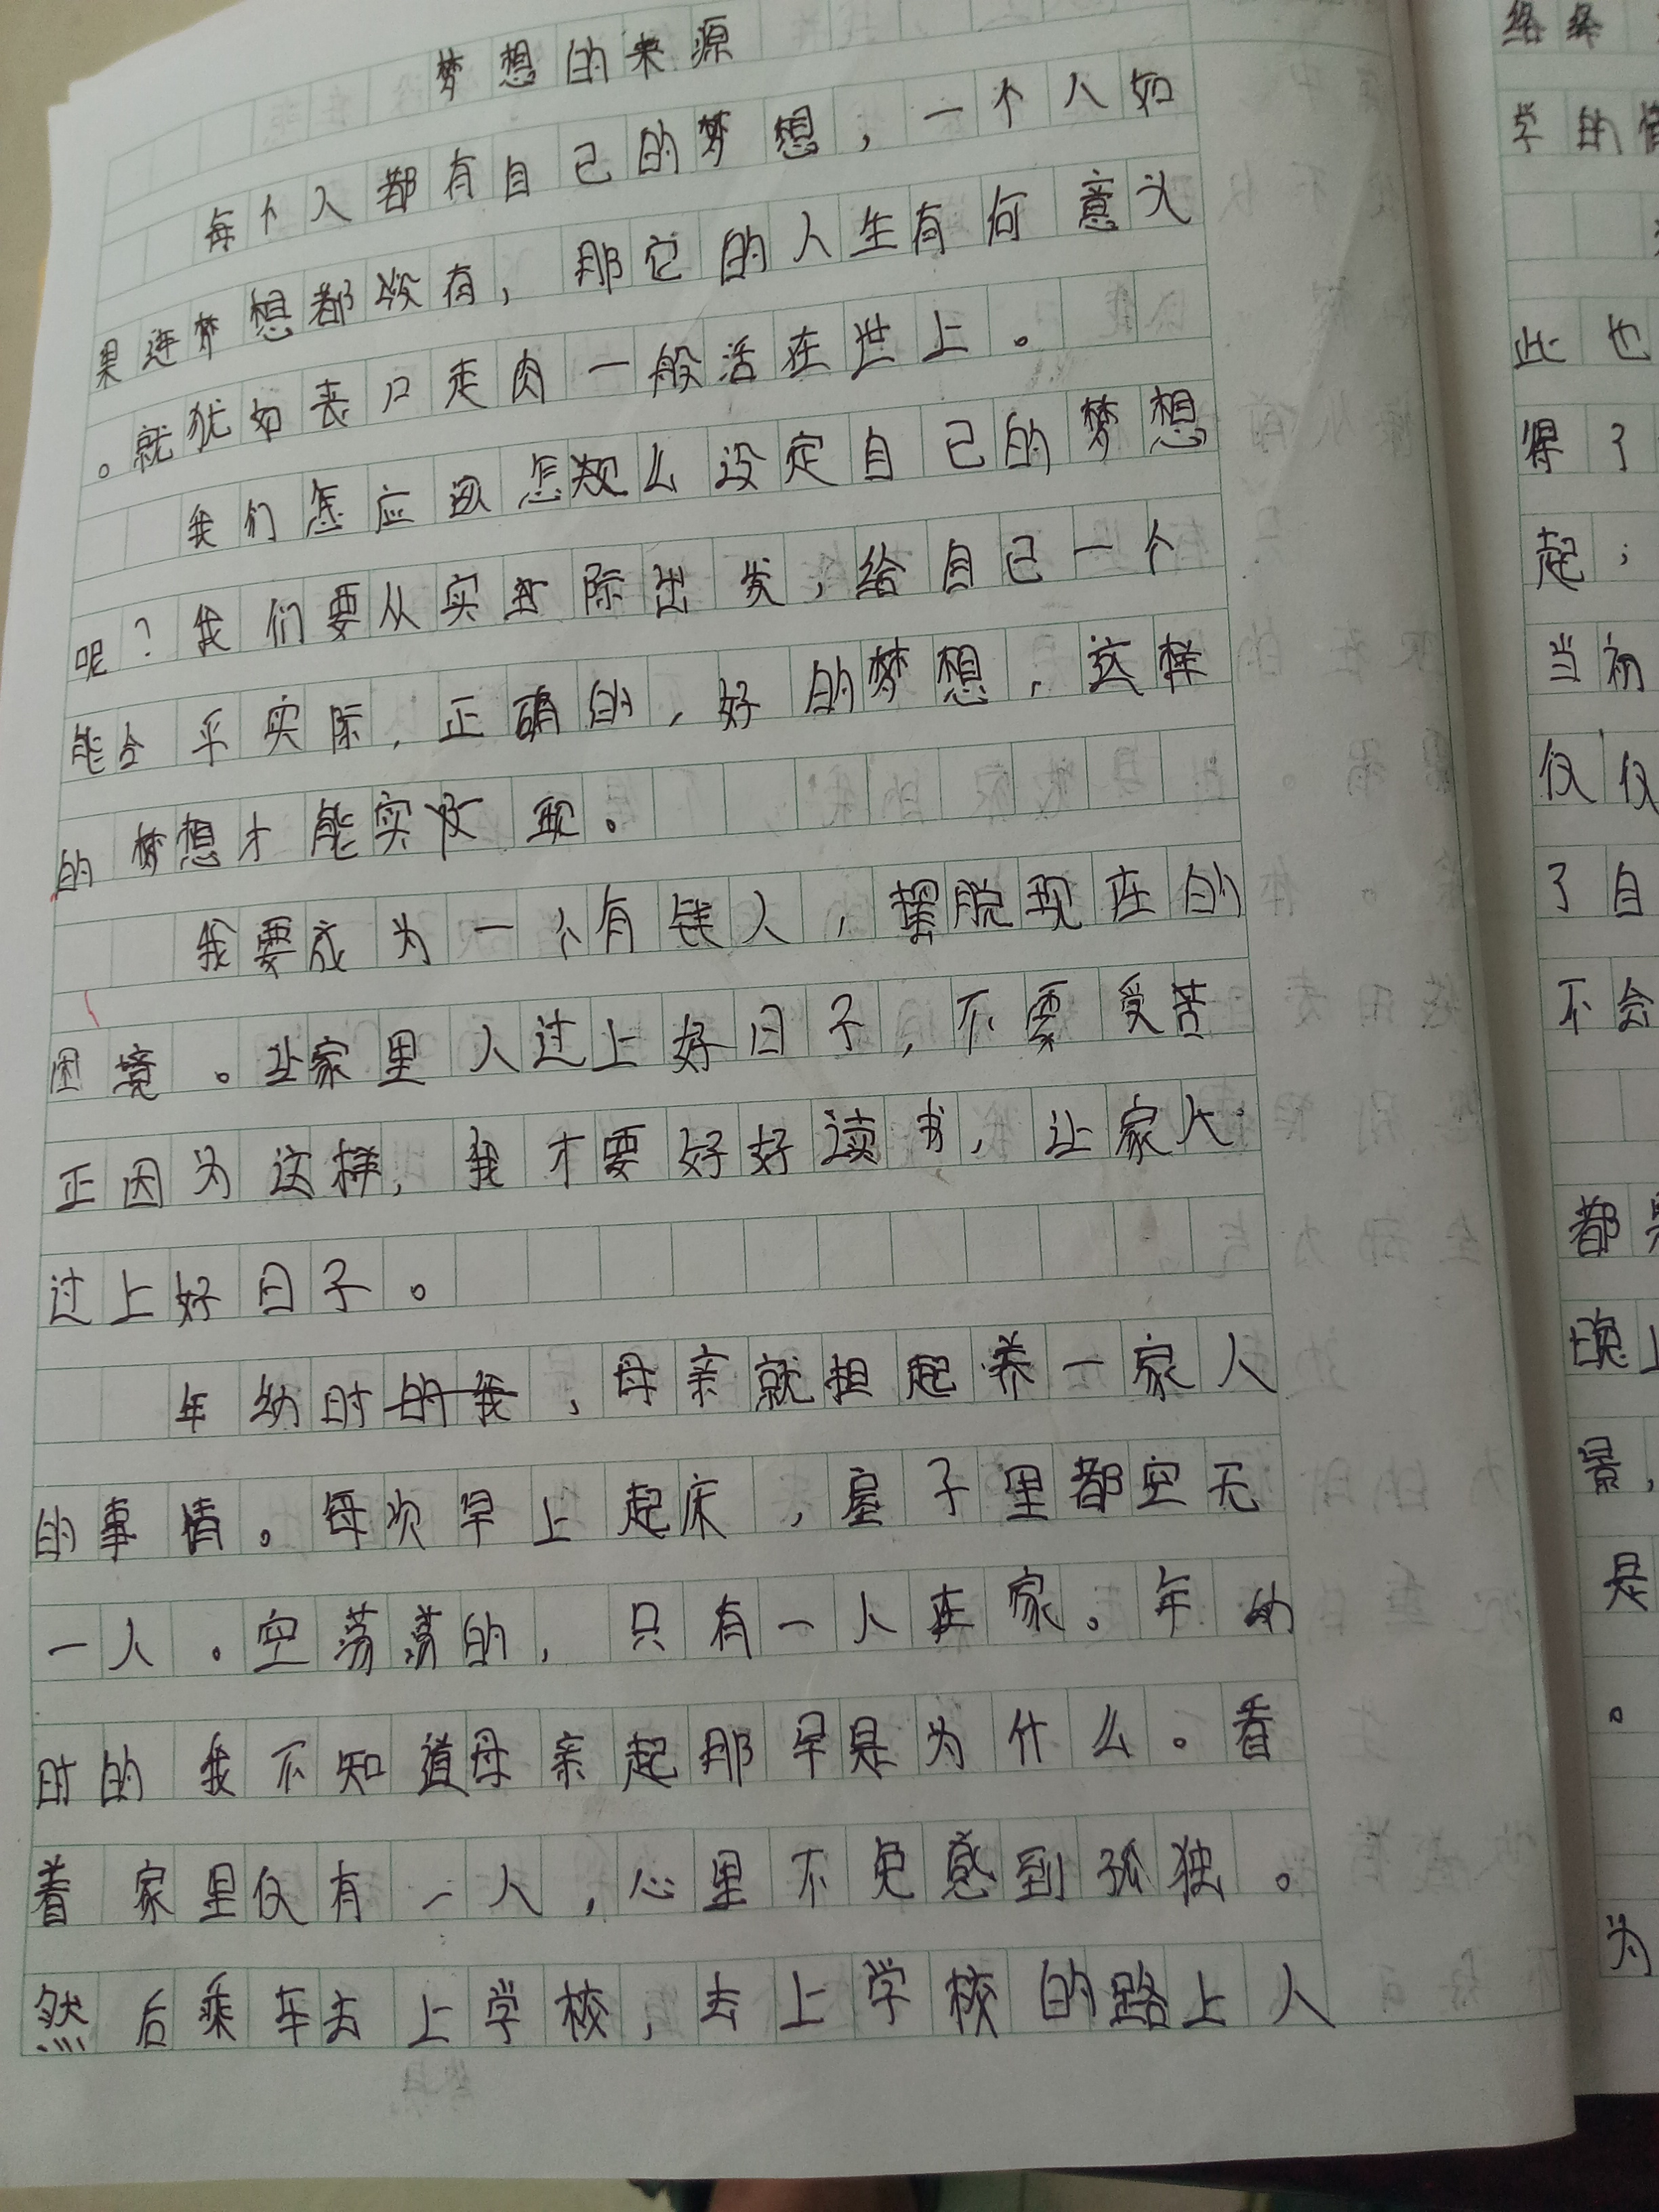 梦想的来源
每个人都有自己的梦想，一个人如
果连梦想都没有，那它的人生有何意义
。就犹如丧尸走肉一般活在世上。
我们怎应该怎么设定自己的梦想
呢？我们要从实际出发，给自己一个
能合乎实际，正确的，好的梦想，这样
的梦想才能实现。
我要成为一个有钱人，摆脱现在的
困境。让家里人过上好日子，不需受苦
正因为这样，我才要好好读书，让家人
过上好日子。
年幼时的我，母亲就担起养一家人
的事情。每次早上起床，屋子里都空无
一人。空荡荡的，只有一人在家。年幼
时的我不知道母亲起那早是为什么。看
着家里仅有一人，心里不免感到孤独。
然后乘车去上学校，去上学校的路上人
络
学的情
此也
得了
起；
当初
仅仅
了自
不会
都
景，
是
。
为